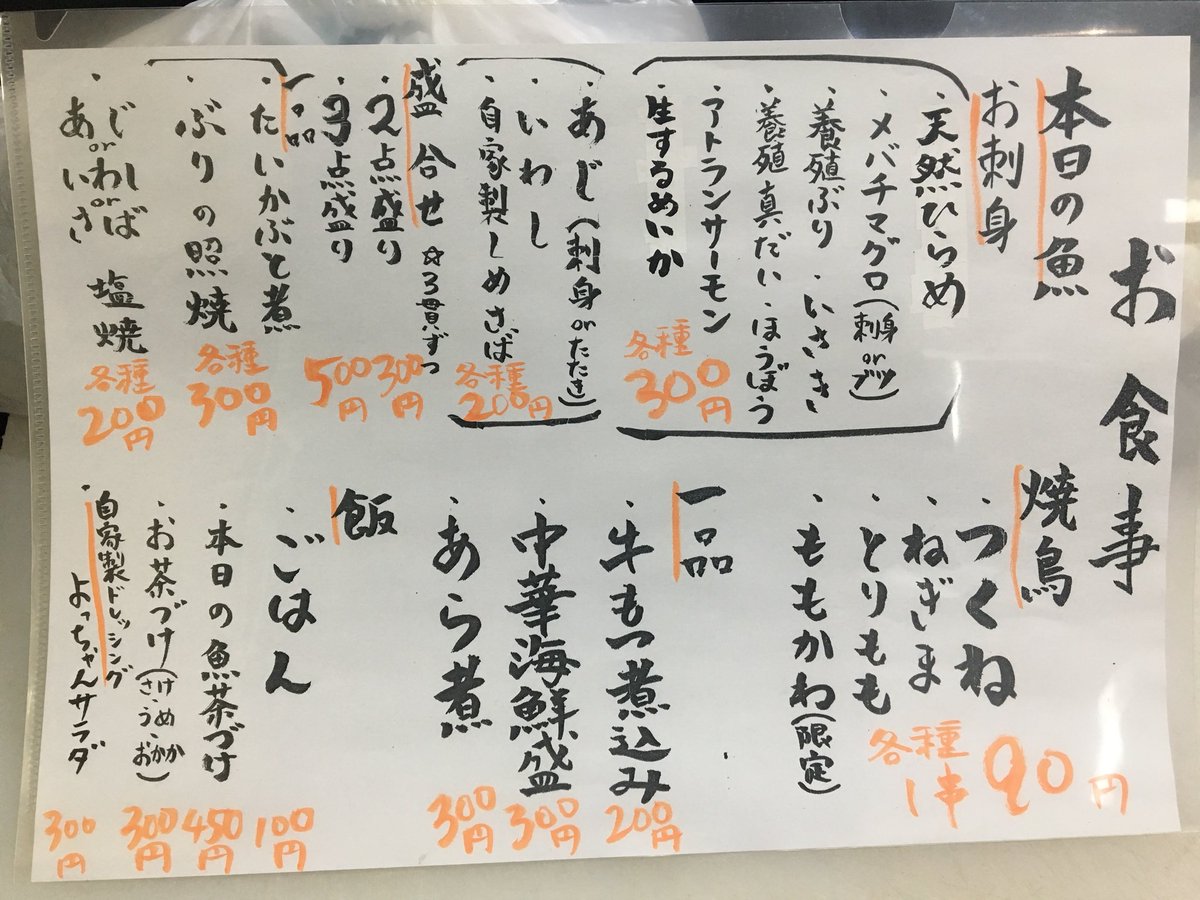 お食事
本日の魚
お刺身
・天然ひらめ
・メバチマグロ(刺身orブツ)
・養殖ぶり・いさき
・養殖真だい・ほうぼう
・アトランサーモン
・生するめいか
各種
300円
・あじ(刺身orたたき)
・いわし
・自家製しめさば
各種
200円
盛合せ ☆3貫ずつ
・2点盛り 300円
・3点盛り 500円
一品
・たいかぶと煮
・ぶりの照焼
各種
300円
・あじorいわしorさば 塩焼
各種
200円
焼鳥
・つくね
・ねぎま
・とりもも
・ももかわ(限定)
各種
1串 90円
一品
・牛もつ煮込み 200円
・中華海鮮盛 300円
・あら煮 300円
飯
・ごはん 100円
・本日の魚茶づけ 450円
・お茶づけ(さけ・うめ・おかか) 300円
・自家製ドレッシング
よっちゃんサラダ 300円